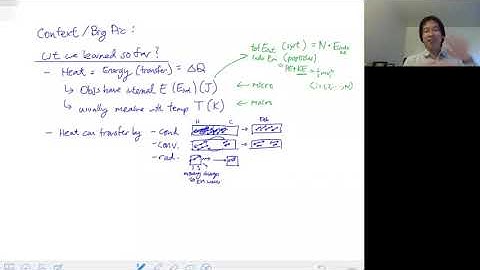 Context / Big Pic:
wt we learned so far?
- Heat = Energy (transfer) = ΔQ
↳ Objs have internal E (Eint) (J) ← micro
↳ usually measure with temp T (K) ← macro
tot Eint (syst) = N · E
PE + KE = ½mv²
- Heat can transfer by - cond. H C →
- conv. →
- rad. →
moving charges
to EM waves